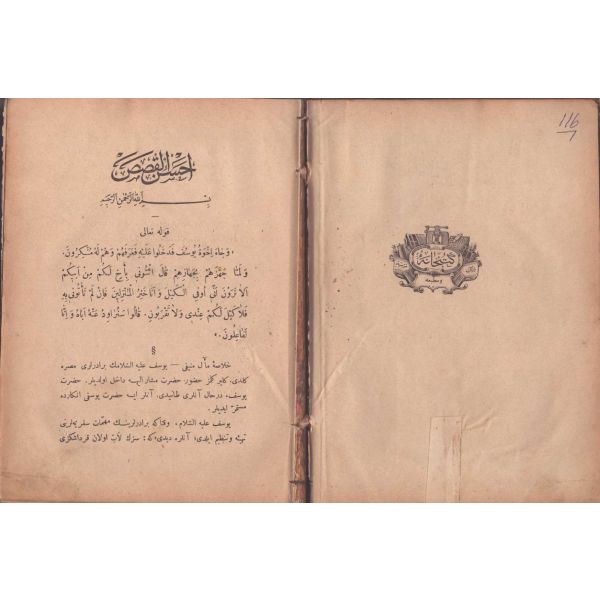 116
7
كتبخانه
و مطبعه
احسن القصص
بسم الله الرحمن الرحيم
قوله تعالى
« وَجَاءَ اِخْوَةُ يُوسُفَ فَدَخَلُوا عَلَيْهِ فَعَرَفَهُمْ وَهُمْ لَهُ مُنْكِرُونَ.
وَلَمَّا جَهَّزَهُمْ بِجَهَازِهِمْ قَالَ ائْتُونِي بِأَخٍ لَكُمْ مِنْ اَبِيكُمْ
اَلَا تَرَوْنَ اَنِّي اُوفِي الْكَيْلَ وَاَنَا خَيْرُ الْمُنْزِلِينَ فَاِنْ لَمْ تَأْتُونِي بِهِ
فَلَا كَيْلَ لَكُمْ عِنْدِي وَلَا تَقْرَبُونِ. قَالُوا سَنُرَاوِدُ عَنْهُ اَبَاهُ وَاِنَّا
لَفَاعِلُونَ. »
§
خلاصهٔ مآل منيفى — يوسف عليه السلامك برادرلرى مصره
كلدى، حضور حضرت مشار اليهه داخل اولديلر. حضرت
يوسف، درحال آنلرى طانيدى. آنلر ايسه حضرت يوسفى انكارده
مستمر ايديلر.
يوسف عليه السلام، وقتاكه برادرلرينك مهمات سفريه لرينى
تهيئه و تنظيم ايلدى، آنلره ديدى كه: سزك لاب اولان قرداشكزى